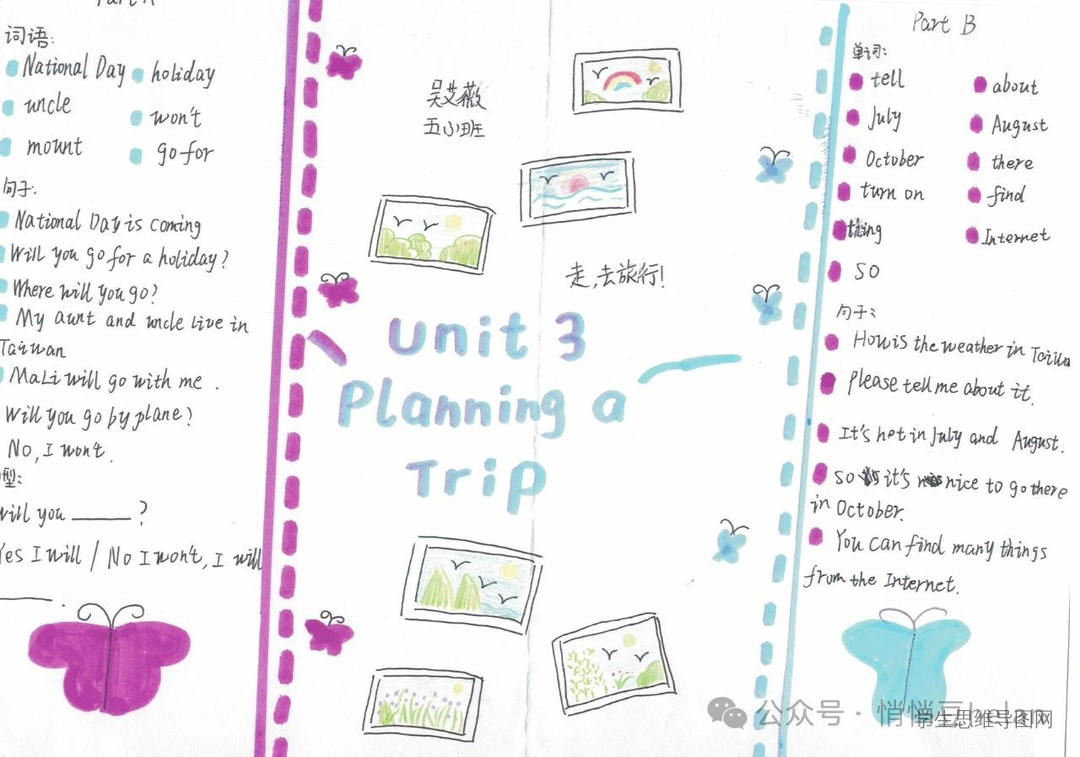 Part A
词语:
National Day
holiday
uncle
won't
mount
go for
句子:
National Day is coming
Will you go for a holiday?
Where will you go?
My aunt and uncle live in
Taiwan
MaLi will go with me.
Will you go by plane?
No, I won't.
型:
will you ______ ?
Yes I will / No I won't, I will
______.
吴艾薇
五小班
走,去旅行!
Unit 3
Planning a
Trip
Part B
单词:
tell
about
July
August
October
there
turn on
find
thing
Internet
so
句子:
How is the weather in
please tell me about it.
It's hot in July and August.
so it's nice to go there
in October.
You can find many things
from the Internet.
公众号 · 悄悄豆
学生思维导图网